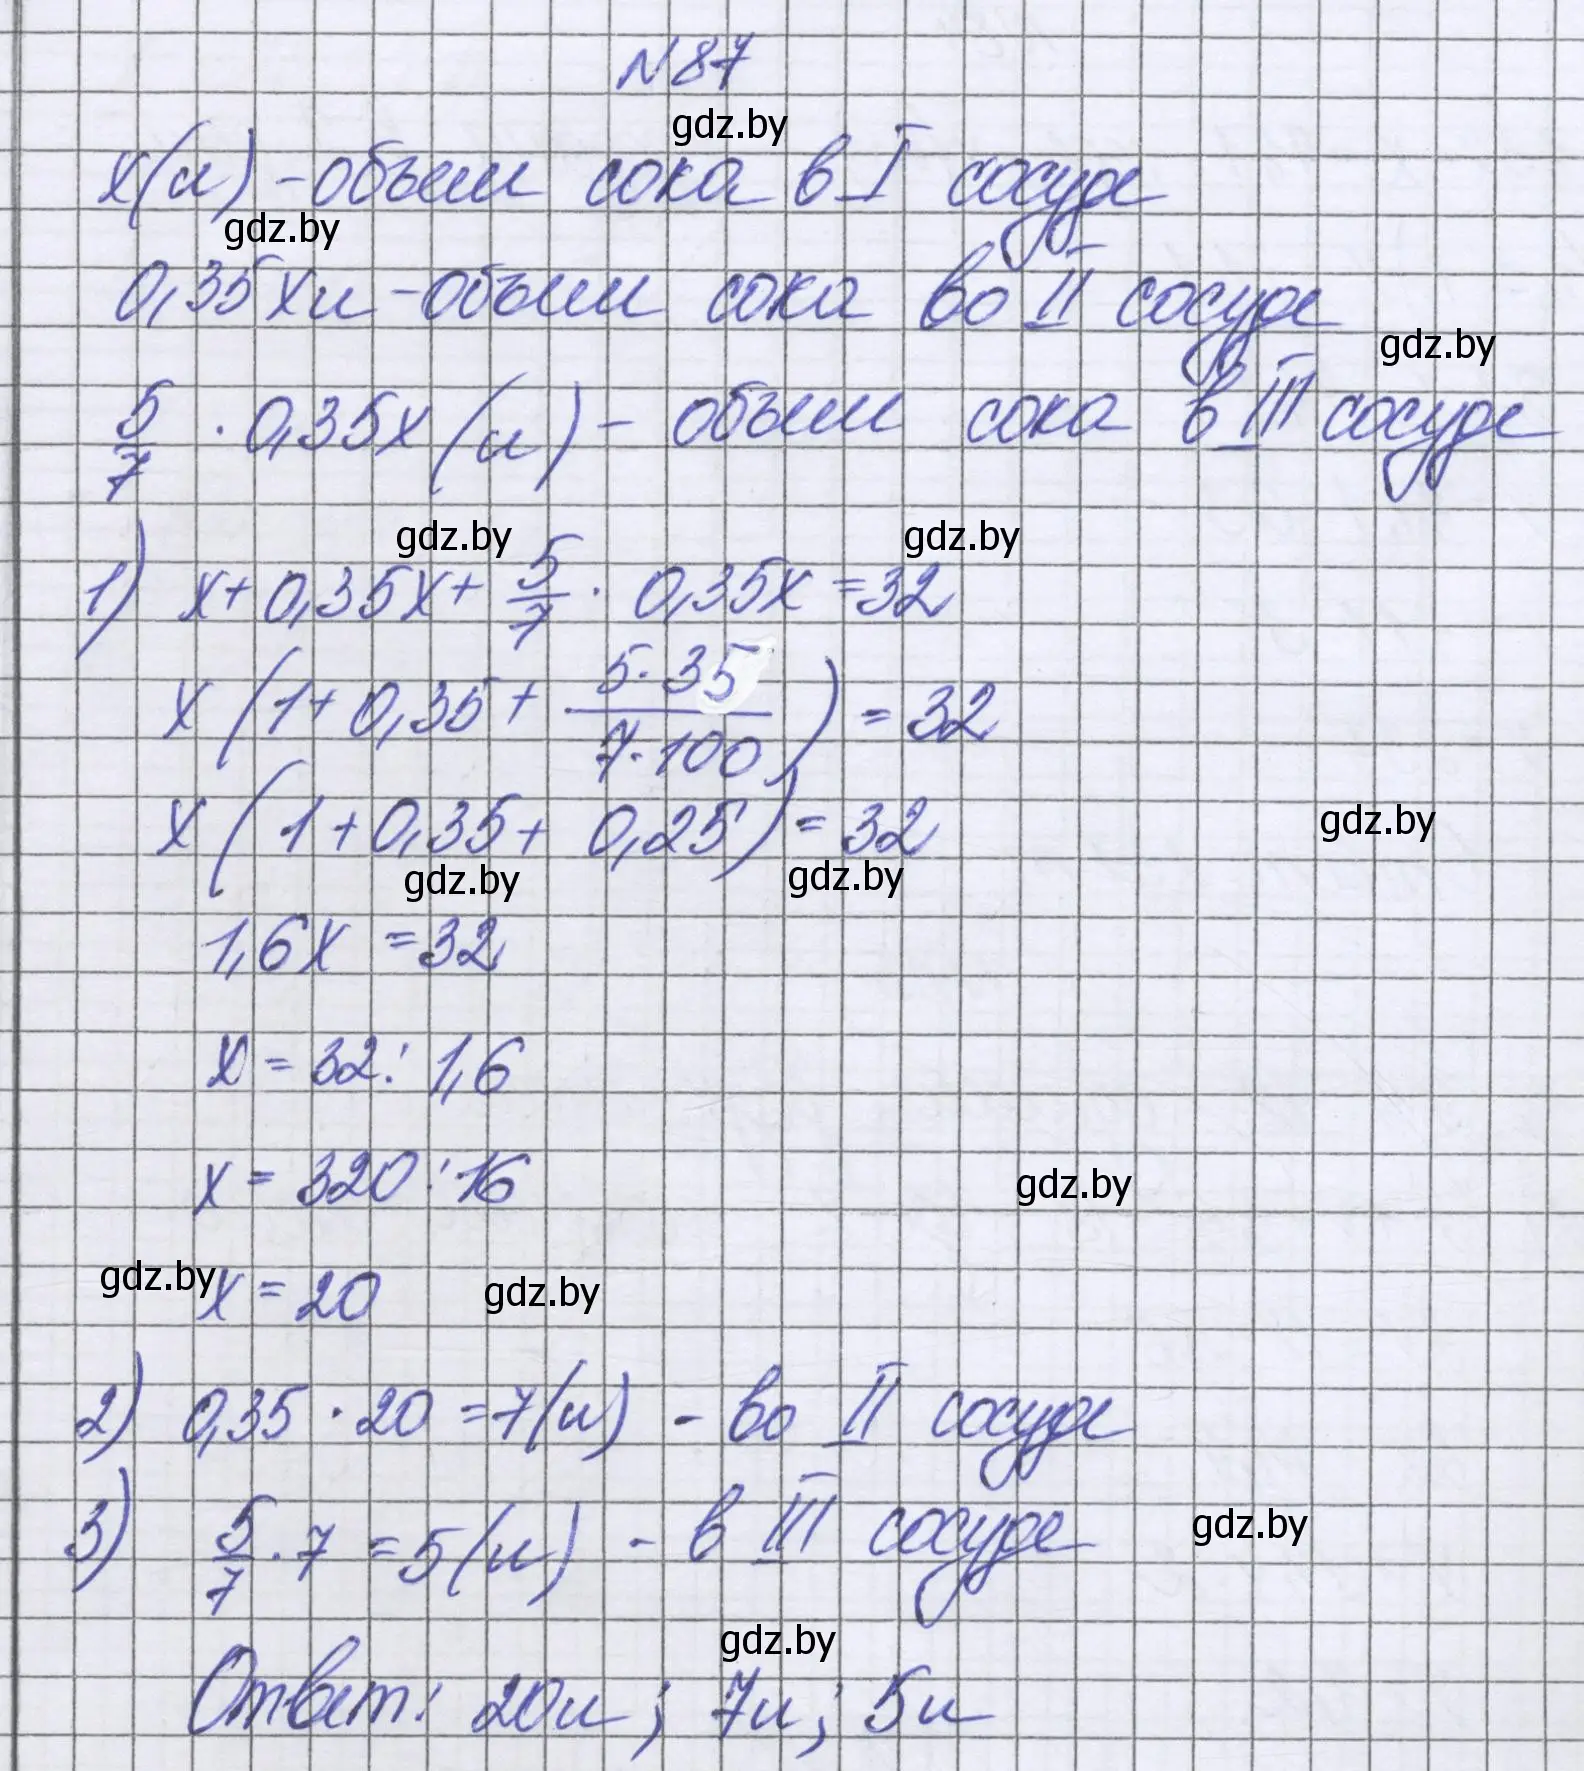 №87
gdz.by
x(л) - объем сока в I сосуде
gdz.by
0,35x л - объем сока во II сосуде
gdz.by
5/7 · 0,35x (л) - объем сока в III сосуде
gdz.by gdz.by
1) x + 0,35x + 5/7 · 0,35x = 32
x (1 + 0,35 + 5·35/7·100) = 32
x (1 + 0,35 + 0,25) = 32
gdz.by
gdz.by gdz.by
1,6x = 32
x = 32 : 1,6
x = 320 : 16
gdz.by
gdz.by x = 20 gdz.by
2) 0,35 · 20 = 7 (л) - во II сосуде
3) 5/7 · 7 = 5 (л) - в III сосуде
gdz.by
gdz.by
Ответ: 20л; 7л; 5л